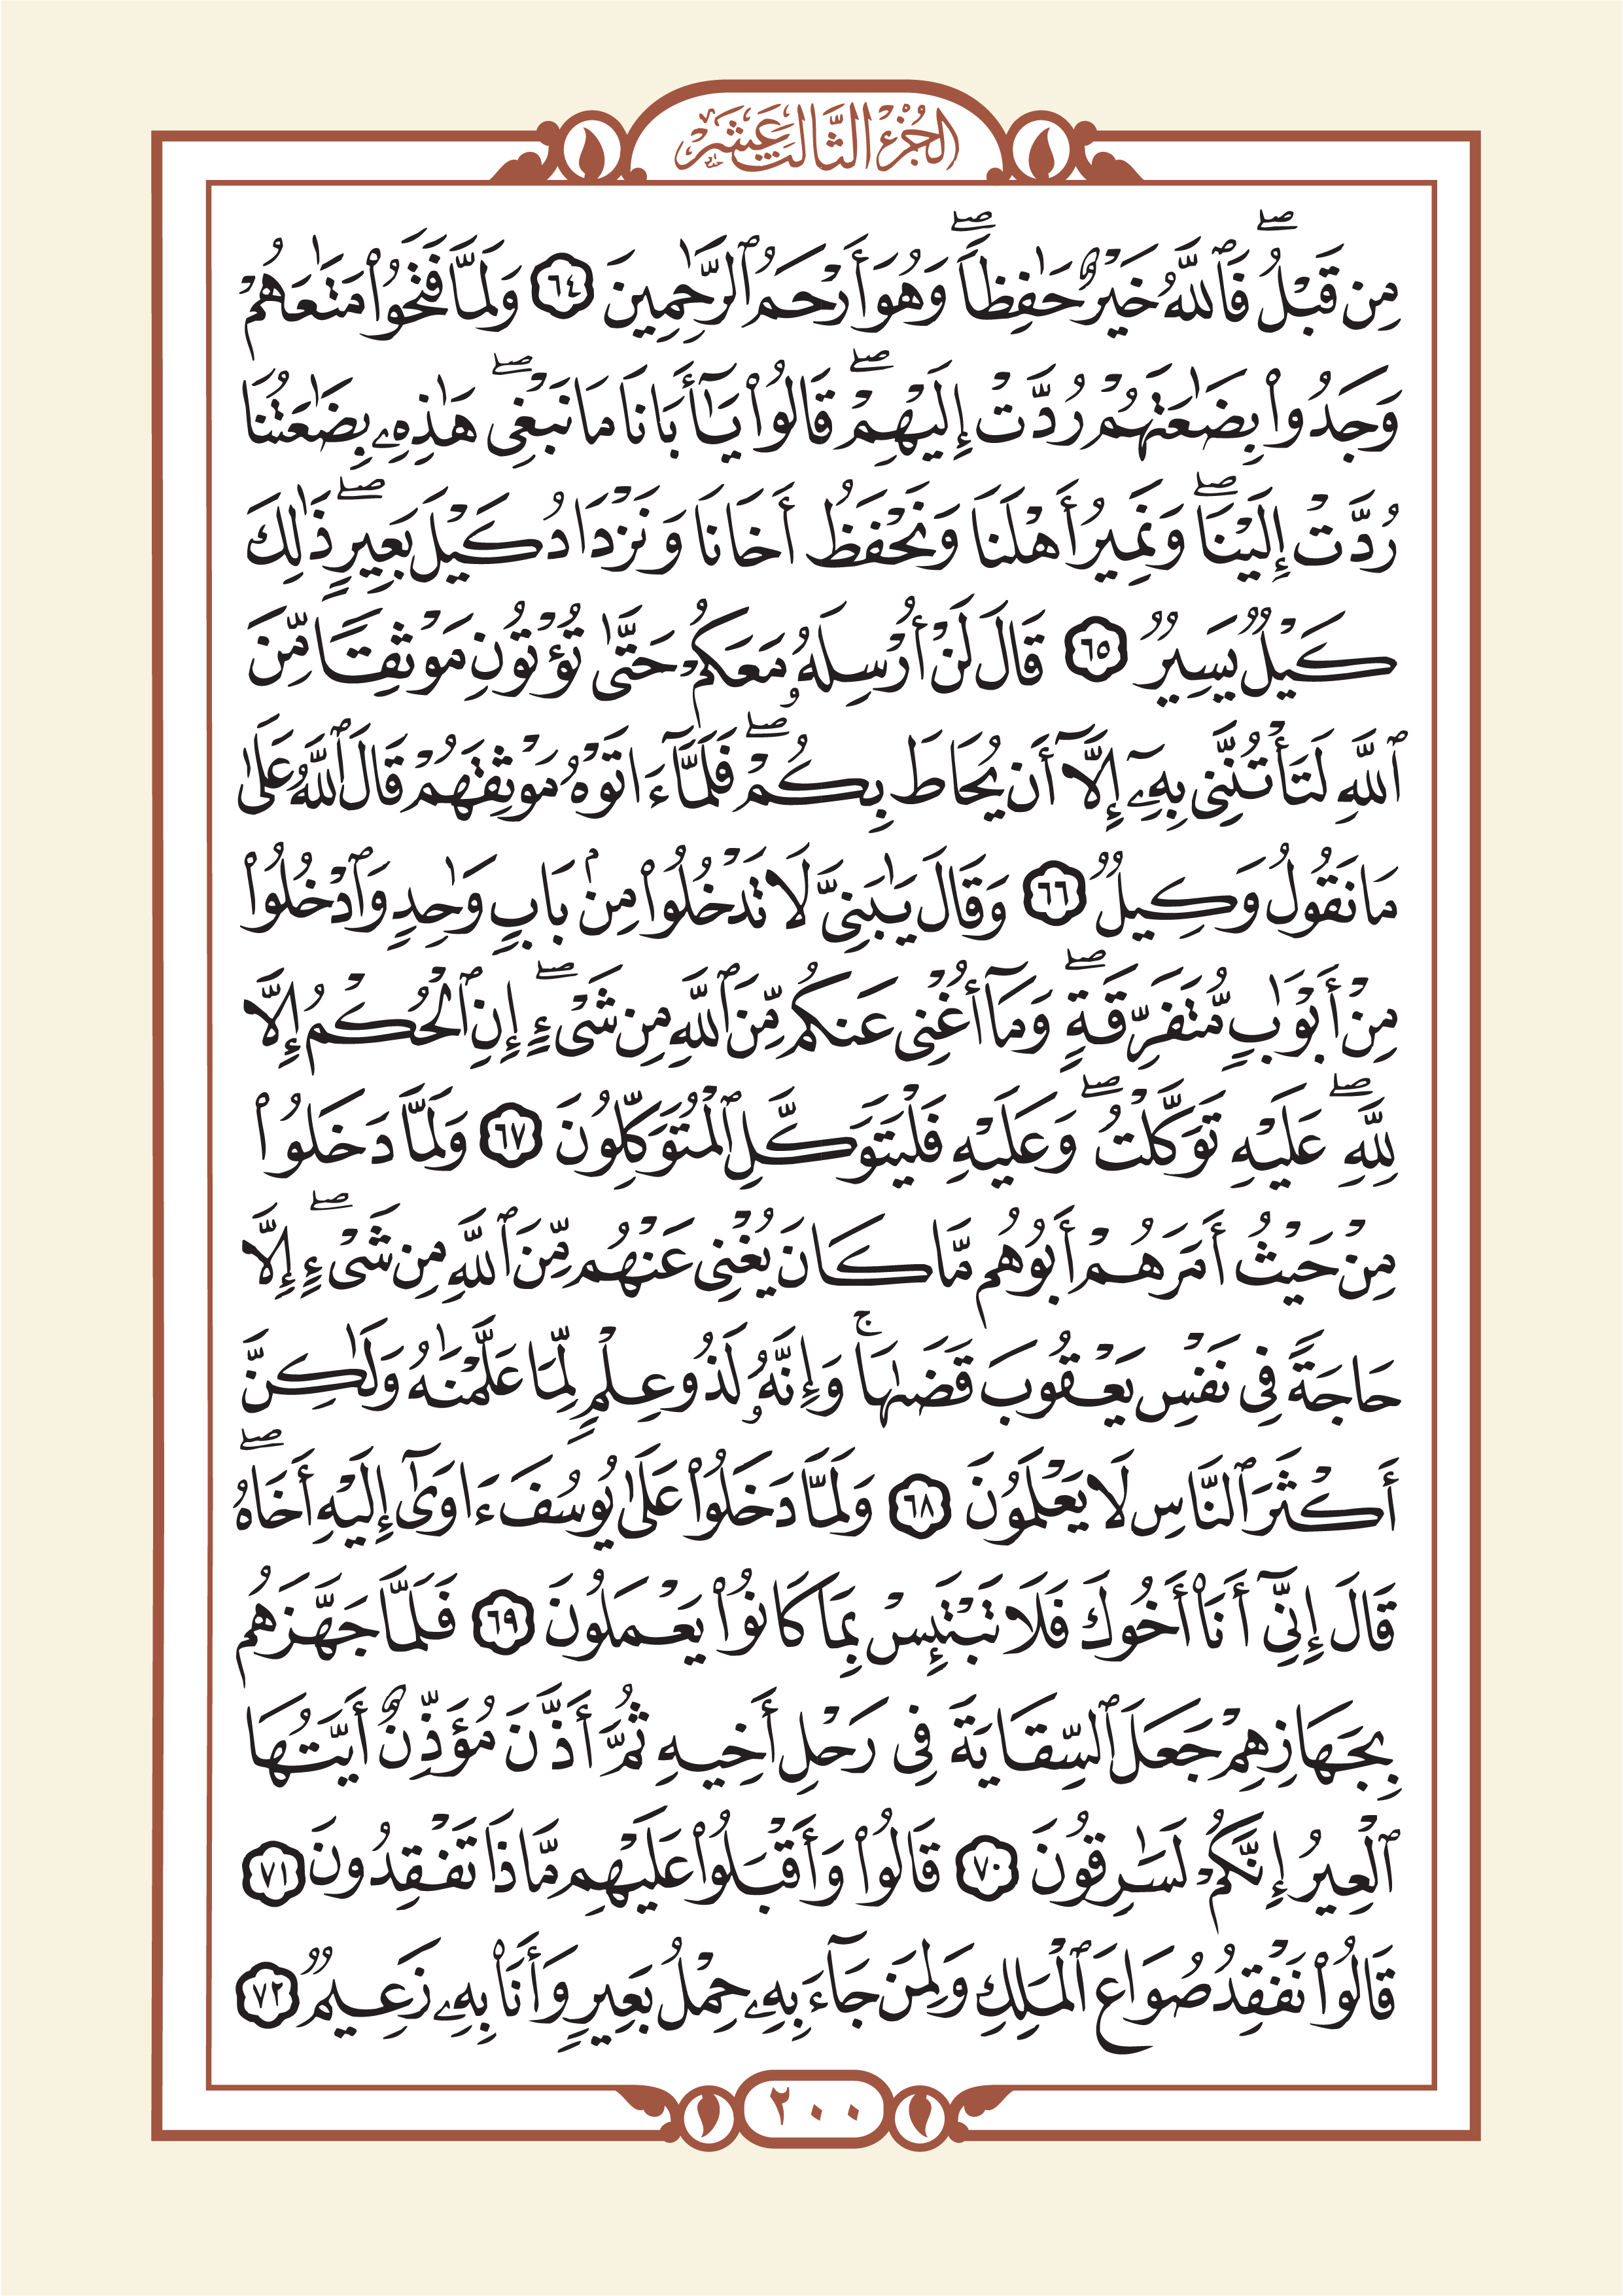 الجُزْءُ الثَّالِثَ عَشَرَ
مِن قَبْلُۖ فَٱللَّهُ خَيْرٌ حَٰفِظٗاۖ وَهُوَ أَرْحَمُ ٱلرَّٰحِمِينَ ٦٤ وَلَمَّا فَتَحُواْ مَتَٰعَهُمْ
وَجَدُواْ بِضَٰعَتَهُمْ رُدَّتْ إِلَيْهِمْۖ قَالُواْ يَٰٓأَبَانَا مَا نَبْغِيۖ هَٰذِهِۦ بِضَٰعَتُنَا
رُدَّتْ إِلَيْنَاۖ وَنَمِيرُ أَهْلَنَا وَنَحْفَظُ أَخَانَا وَنَزْدَادُ كَيْلَ بَعِيرٖۖ ذَٰلِكَ
كَيْلٞ يَسِيرٞ ٦٥ قَالَ لَنْ أُرْسِلَهُۥ مَعَكُمْ حَتَّىٰ تُؤْتُونِ مَوْثِقٗا مِّنَ
ٱللَّهِ لَتَأْتُنَّنِي بِهِۦٓ إِلَّآ أَن يُحَاطَ بِكُمْۖ فَلَمَّآ ءَاتَوْهُ مَوْثِقَهُمْ قَالَ ٱللَّهُ عَلَىٰ
مَا نَقُولُ وَكِيلٞ ٦٦ وَقَالَ يَٰبَنِيَّ لَا تَدْخُلُواْ مِنۢ بَابٖ وَٰحِدٖ وَٱدْخُلُواْ
مِنْ أَبْوَٰبٖ مُّتَفَرِّقَةٖۖ وَمَآ أُغْنِي عَنكُم مِّنَ ٱللَّهِ مِن شَيْءٍۖ إِنِ ٱلْحُكْمُ إِلَّا
لِلَّهِۖ عَلَيْهِ تَوَكَّلْتُۖ وَعَلَيْهِ فَلْيَتَوَكَّلِ ٱلْمُتَوَكِّلُونَ ٦٧ وَلَمَّا دَخَلُواْ
مِنْ حَيْثُ أَمَرَهُمْ أَبُوهُم مَّا كَانَ يُغْنِي عَنْهُم مِّنَ ٱللَّهِ مِن شَيْءٍۖ إِلَّا
حَاجَةٗ فِي نَفْسِ يَعْقُوبَ قَضَىٰهَاۚ وَإِنَّهُۥ لَذُو عِلْمٖ لِّمَا عَلَّمْنَٰهُ وَلَٰكِنَّ
أَكْثَرَ ٱلنَّاسِ لَا يَعْلَمُونَ ٦٨ وَلَمَّا دَخَلُواْ عَلَىٰ يُوسُفَ ءَاوَىٰٓ إِلَيْهِ أَخَاهُۖ
قَالَ إِنِّيٓ أَنَا۠ أَخُوكَ فَلَا تَبْتَئِسْ بِمَا كَانُواْ يَعْمَلُونَ ٦٩ فَلَمَّا جَهَّزَهُم
بِجَهَازِهِمْ جَعَلَ ٱلسِّقَايَةَ فِي رَحْلِ أَخِيهِ ثُمَّ أَذَّنَ مُؤَذِّنٌ أَيَّتُهَا
ٱلْعِيرُ إِنَّكُمْ لَسَٰرِقُونَ ٧٠ قَالُواْ وَأَقْبَلُواْ عَلَيْهِم مَّاذَا تَفْقِدُونَ ٧١
قَالُواْ نَفْقِدُ صُوَاعَ ٱلْمَلِكِ وَلِمَن جَآءَ بِهِۦ حِمْلُ بَعِيرٖ وَأَنَا۠ بِهِۦ زَعِيمٞ ٧٢
٢٠٠